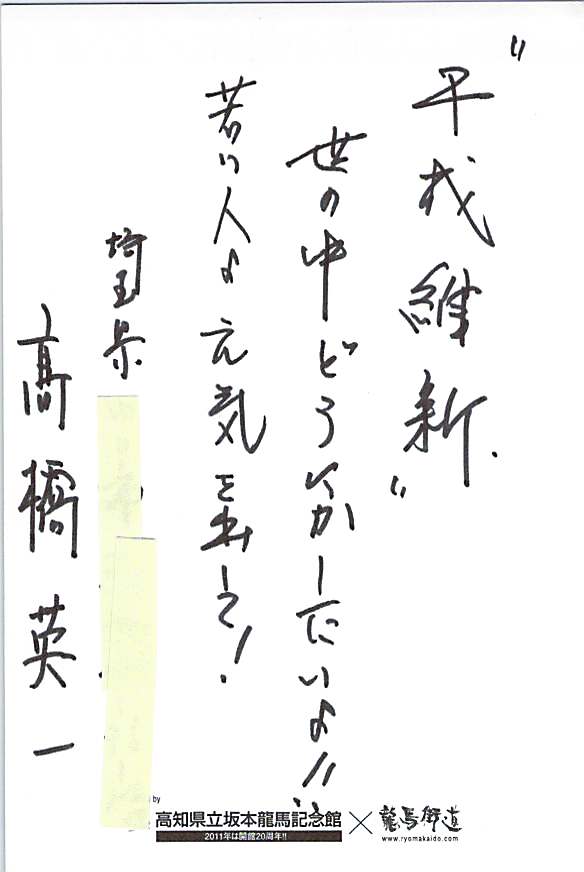 "平成維新."
世の中どうにかしたいよ!!
若い人よ元気を出して!
埼玉県
髙橋英一
by
高知県立坂本龍馬記念館×龍馬街道
2011年は開館20周年!!
www.ryomakaido.com